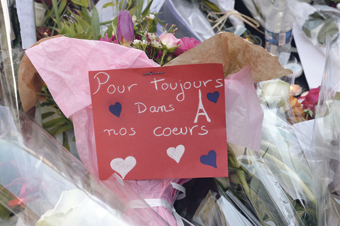 Pour toujours
Dans
nos coeurs